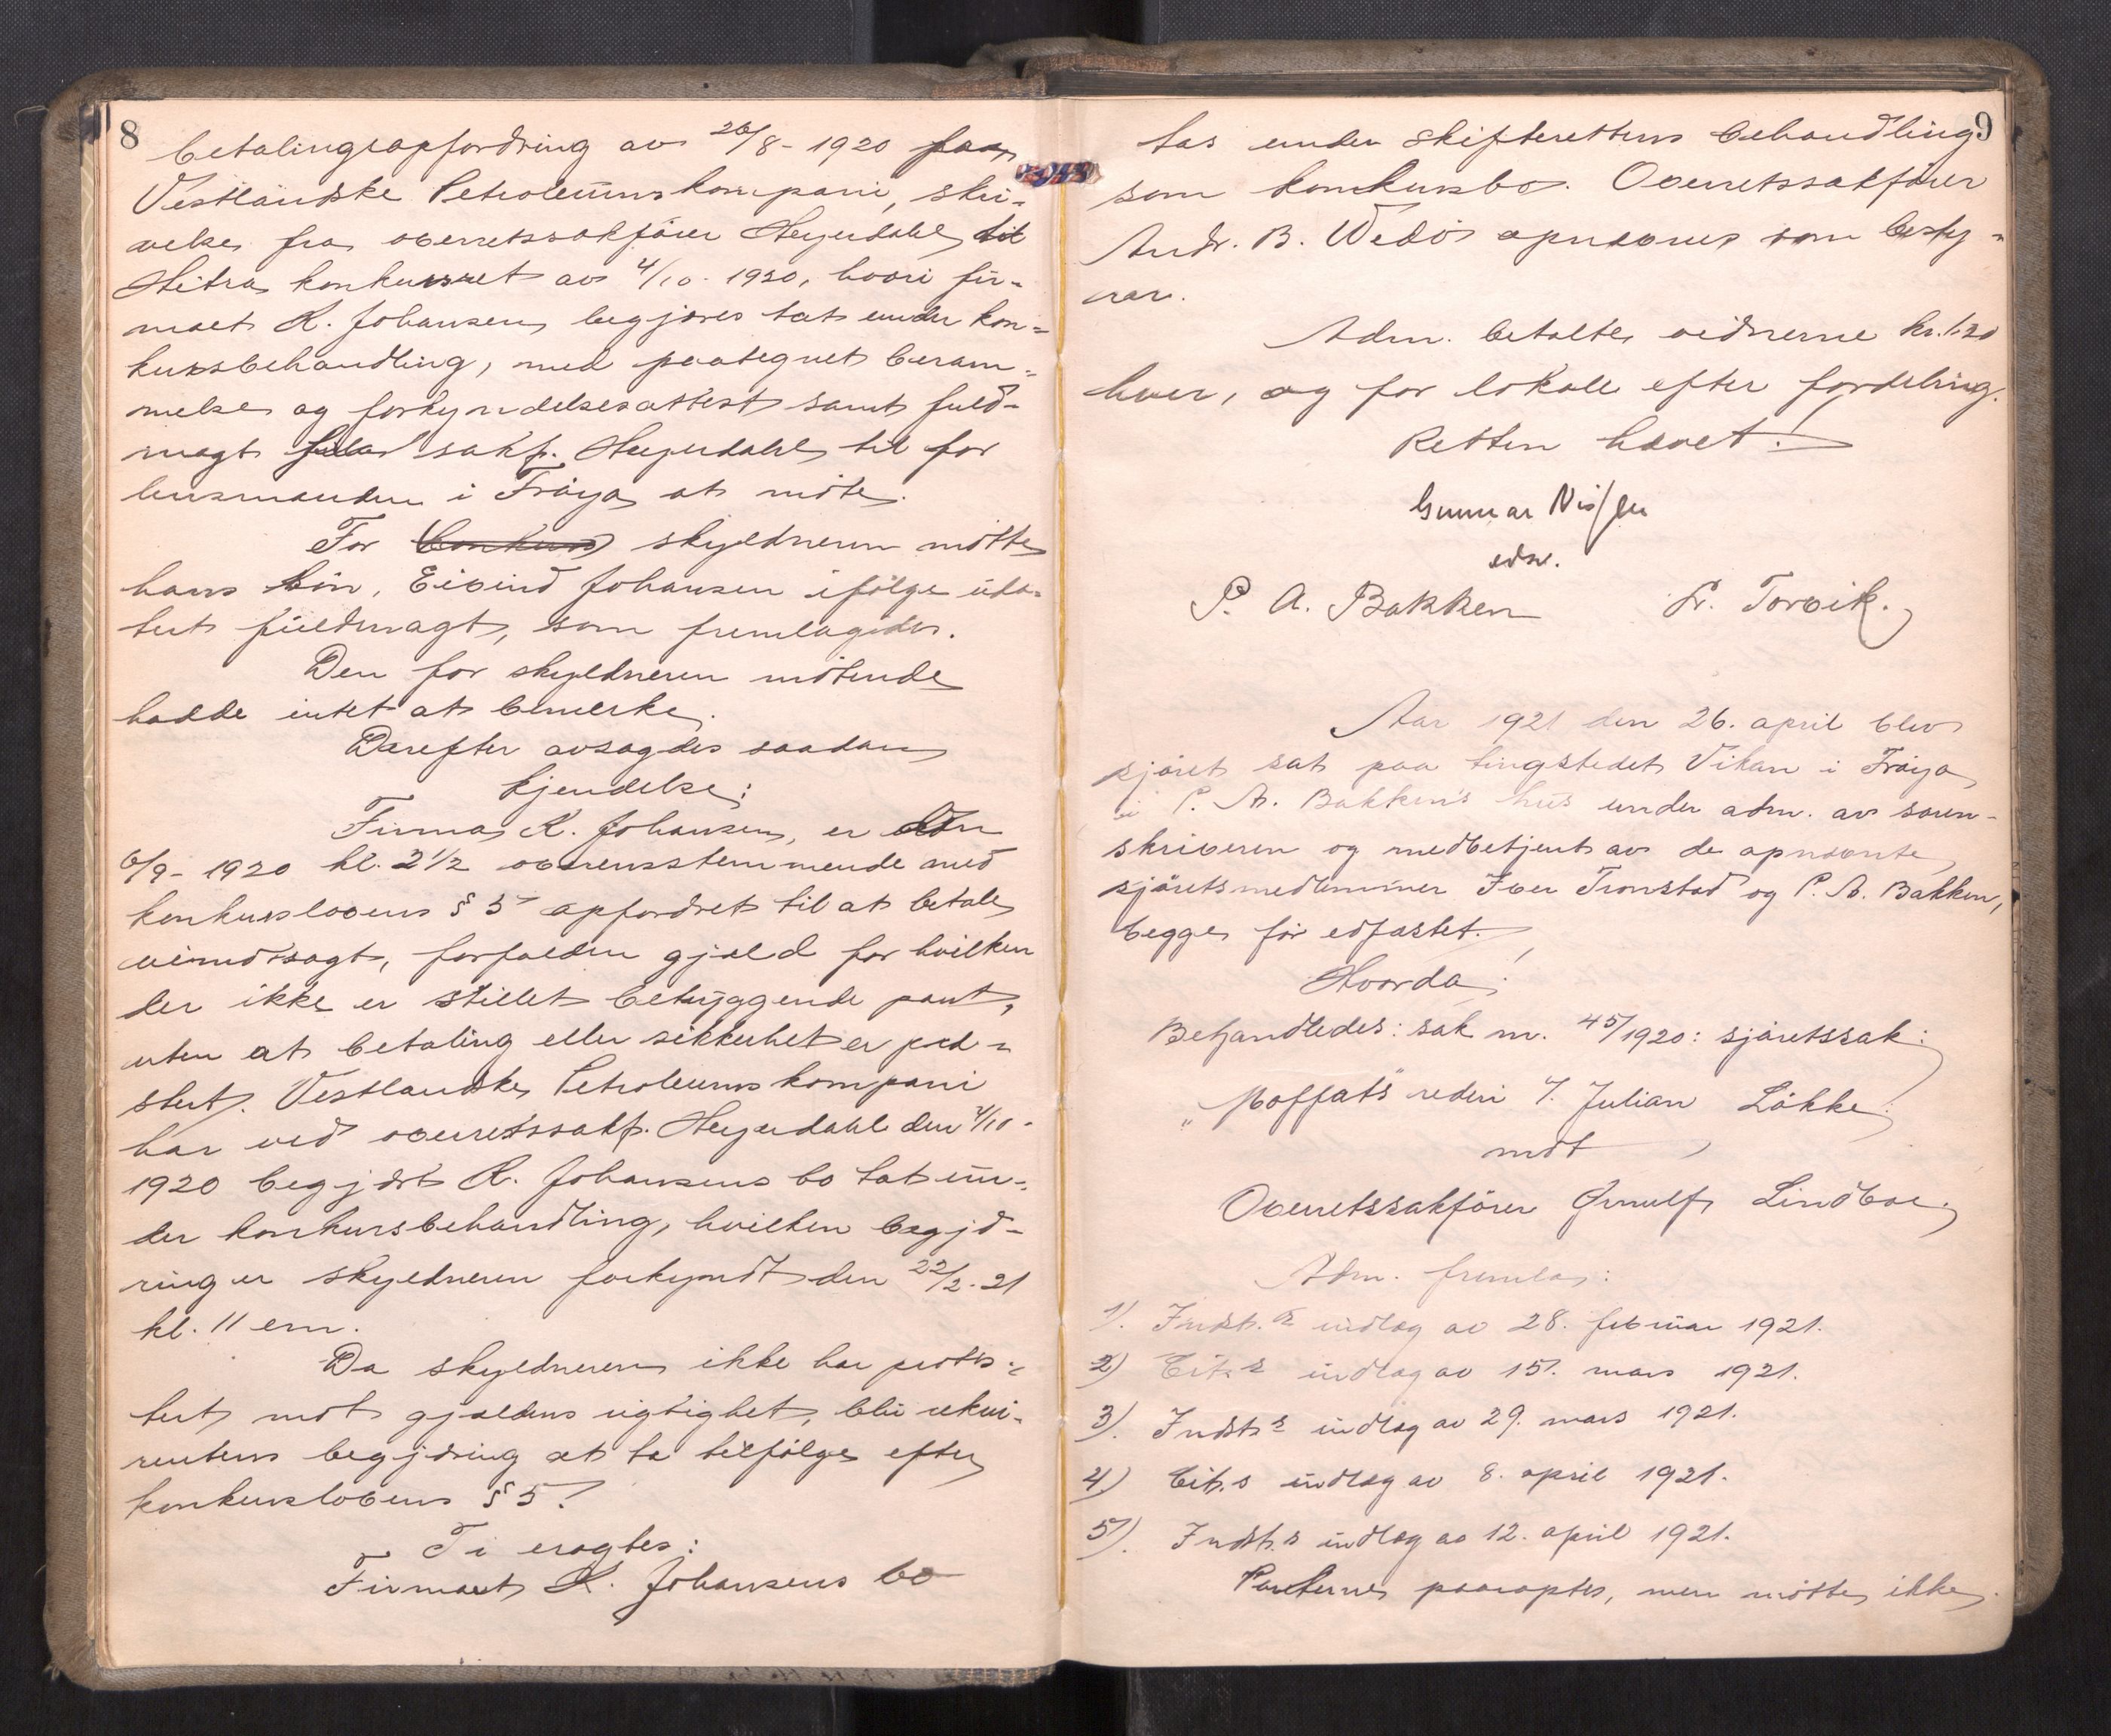 8
betalingsopfordring av 26/8 - 1920 fra
Vestlandske Petroleumskompani, skri-
velse fra overretssakfører Heyerdahl til
Hitra konkursret av 4/10 - 1920, hvori fir-
maet K. Johansen begjæres tat under kon-
kursbehandling, med paategnet beram-
melse og forkyndelsesattest samt fuld-
magt fra sakf. Heyerdahl til for
lensmanden i Frøya at møte.
For konkurs skyldneren møtte
hans søn, Eivind Johansen ifølge uda-
tert fuldmagt, som fremlagdes.
Den for skyldneren møtende
hadde intet at bemerke.
Derefter avsagdes saadan
kjendelse:
Firma K. Johansen, er den
6/9 - 1920 kl. 2 1/2 overensstemmende med
konkurslovens § 5 opfordret til at betale
uimotsagt, forfalden gjæld for hvilken
der ikke er stillet betryggende pant,
uten at betaling eller sikkerhet er præ-
stert. Vestlandske Petroleumskompani
har ved overretssakf. Heyerdahl den 4/10 -
1920 begjært K. Johansens bo tat un-
der konkursbehandling, hvilken begjæ-
ring er skyldneren forkyndt den 22/2 - 21
kl. 11 em.
Da skyldneren ikke har protes-
tert mot gjældens rigtighet, blir rekvi-
rentens begjæring at ta tilfølge efter
konkurslovens § 5.
Ti eragtes:
Firmaet K. Johansens bo
9
tas under skifterettens behandling
som konkursbo. Overretssakfører
Andr. B. Wedø opnævnes som besty-
rer.
Adm. betalte vidnerne kr. 1.20
hver, og for lokale efter fordeling.
Retten hævet.
Gunnar Nissen
edsv.
P. A. Bakken Fr. Torvik.
Aar 1921 den 26. april blev
sjøret sat paa tingstedet Vikan i Frøya
i P. A. Bakken's hus under adm. av soren-
skriveren og medbetjent av de opnævnte
sjøretsmedlemmer Iver Tronstad og P. A. Bakken,
begge før edfæstet.
Hvorda:
Behandledes: sak nr. 45/1920: sjøretssak:
"Moffats" rederi v. Julian Løkke
mot
Overretssakfører Ørnulf Lindboe.
Adm. fremla:
1). Indst.s indlæg av 28. februar 1921.
2) Cit.s indlæg av 15. mars 1921.
3). Indst.s indlæg av 29. mars 1921.
4) Cit.s indlæg av 8. april 1921.
5). Indst.s indlæg av 12. april 1921.
Parterne paaroptes, men møtte ikke.